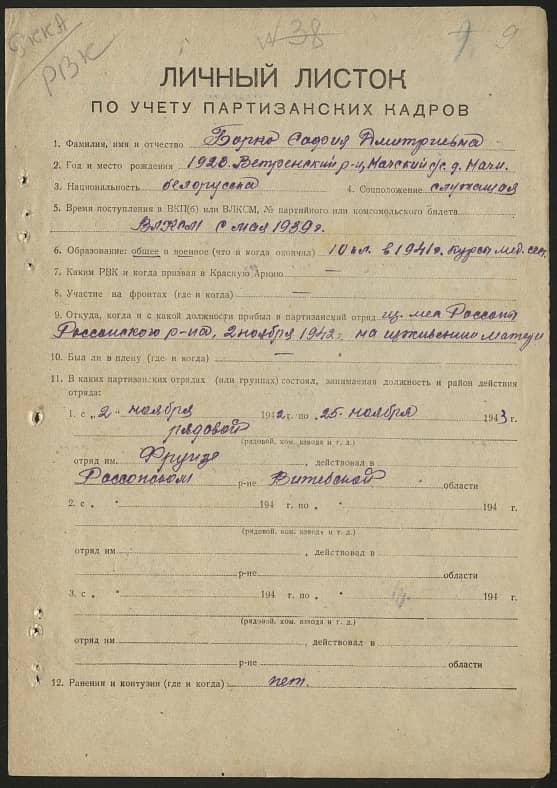 РККА
РВК
N 38
9
ЛИЧНЫЙ ЛИСТОК
ПО УЧЕТУ ПАРТИЗАНСКИХ КАДРОВ
1. Фамилия, имя и отчество Борно София Дмитриевна
2. Год и место рождения 1923. Ветренский р-н, Мачский с/с. д. Мачи.
3. Национальность белорусска 4. Соцположение служащая
5. Время поступления в ВКП(б) или ВЛКСМ, № партийного или комсомольского билета
ВЛКСМ с мая 1939 г.
6. Образование: общее и военное (что и когда окончил) 10 кл. в 1941 г. курсы мед. сест.
7. Каким РВК и когда призван в Красную Армию —
8. Участие на фронтах (где и когда) —
9. Откуда, когда и с какой должности прибыл в партизанский отряд из мес Россоны
Россонского р-на, 2 ноября 1942 г. на иждивении матери
10. Был ли в плену (где и когда) —
11. В каких партизанских отрядах (или группах) состоял, занимаемая должность и район действия
отряда:
1. с „2" ноября 1942 г. по „25" ноября 1943 г.
рядовой
(рядовой, ком. взвода и т. д.)
отряд им. Фрунзе, действовал в
Россонском р-не Витебской области
2. с „ " 194 г. по „ " 194 г.
(рядовой, ком. взвода и т. д.)
отряд им , действовал в
р-не области
3. с „ " 194 г. по „ " 194 г.
(рядовой, ком. взвода и т. д.)
отряд им , действовал в
р-не области
12. Ранения и контузии (где и когда) нет.